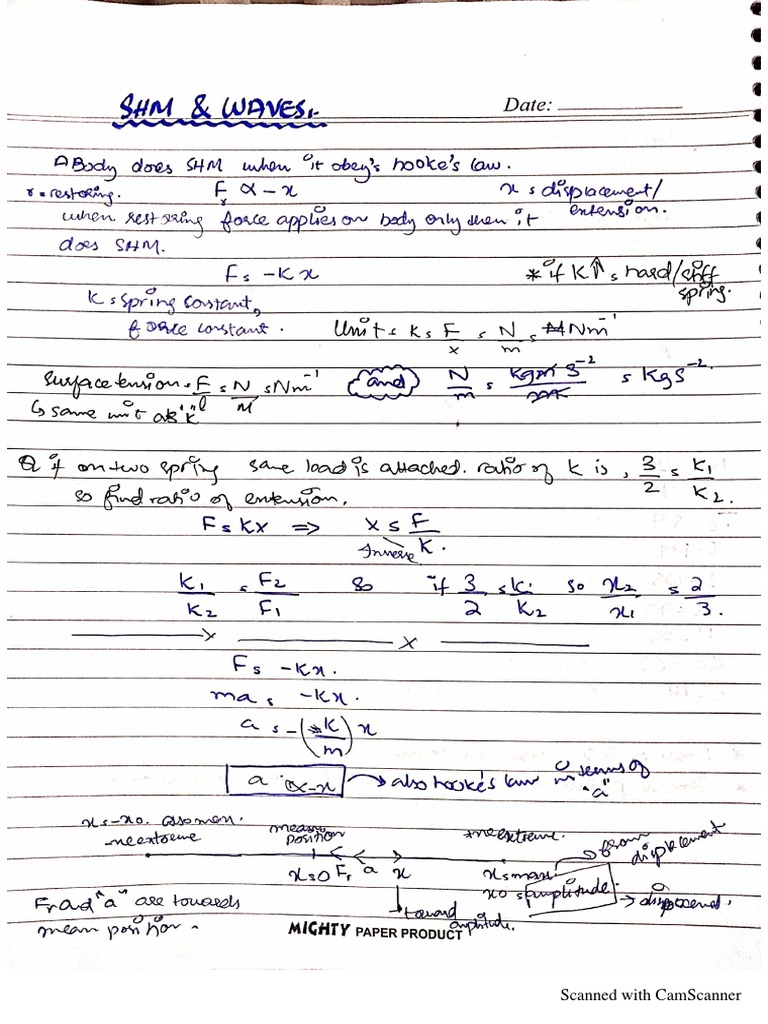 SHM & WAVES:-
Date:
A Body does SHM when it obey's hooke's law.
r = restoring. Fr ∝ -x x = displacement/
extension.
when restoring force applies on body only then it
does SHM.
F = -Kx * if K↑ = hard/stiff
spring.
K = spring constant,
force constant. Unit = K = F/x = N/m = Nm⁻¹
Surface tension = F/l = N/M = Nm⁻¹ and N/m = kgm s⁻²/m = Kgs⁻².
↳ same unit as "k"
Q if on two spring same load is attached. ratio of K is, 3/2 = K₁/K₂.
so find ratio of extension.
F = Kx ⇒ x = F/K.
Inverse
K₁/K₂ = F₂/F₁ so if 3/2 = K₁/K₂ so x₂/x₁ = 2/3.
x x
F = -Kx.
ma = -Kx.
a = -(K/m) x
a ∝ -x → also hooke's law in terms of
"a"
x = -x₀.
-ve extreme mean position +ve extreme. from displacement
x=0 Fr a x x = max
x₀ = amplitude. → displacement.
Fr and "a" are towards
mean position. toward amplitude.
MIGHTY PAPER PRODUCT
Scanned with CamScanner